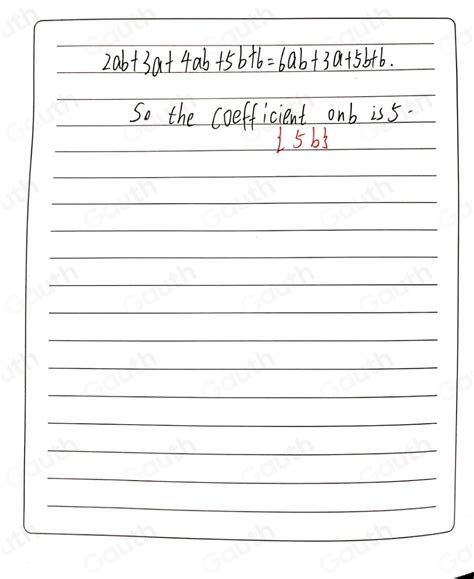 2ab+3a+4ab+5b+6=6ab+3a+5b+6.
So the coefficient on b is 5.
{5b}
Gauth